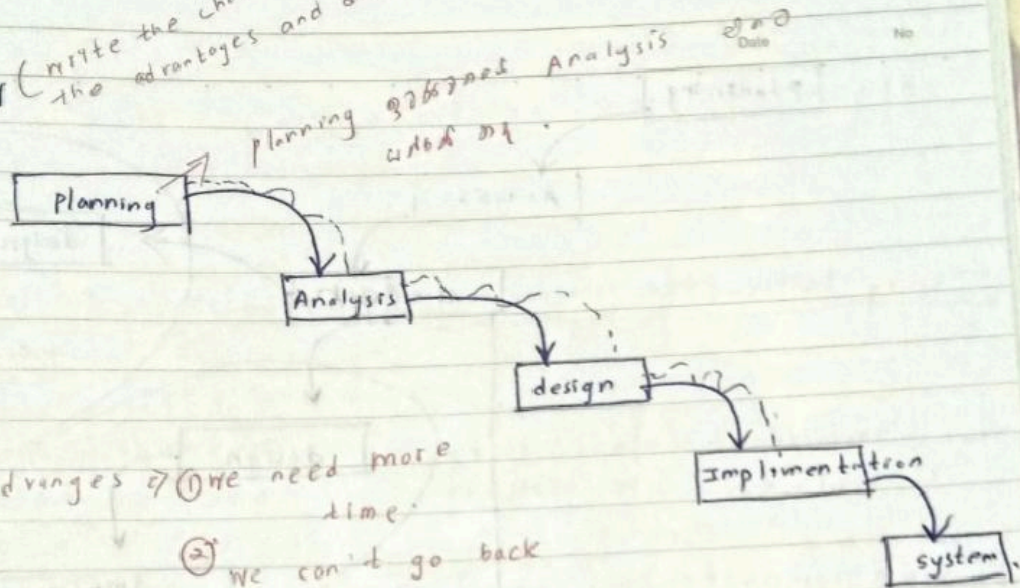 write the
the advantages and
Date
No
planning Analysis
planning
Analysis
design
Implimentation
system
① we need more
time.
② we can't go back